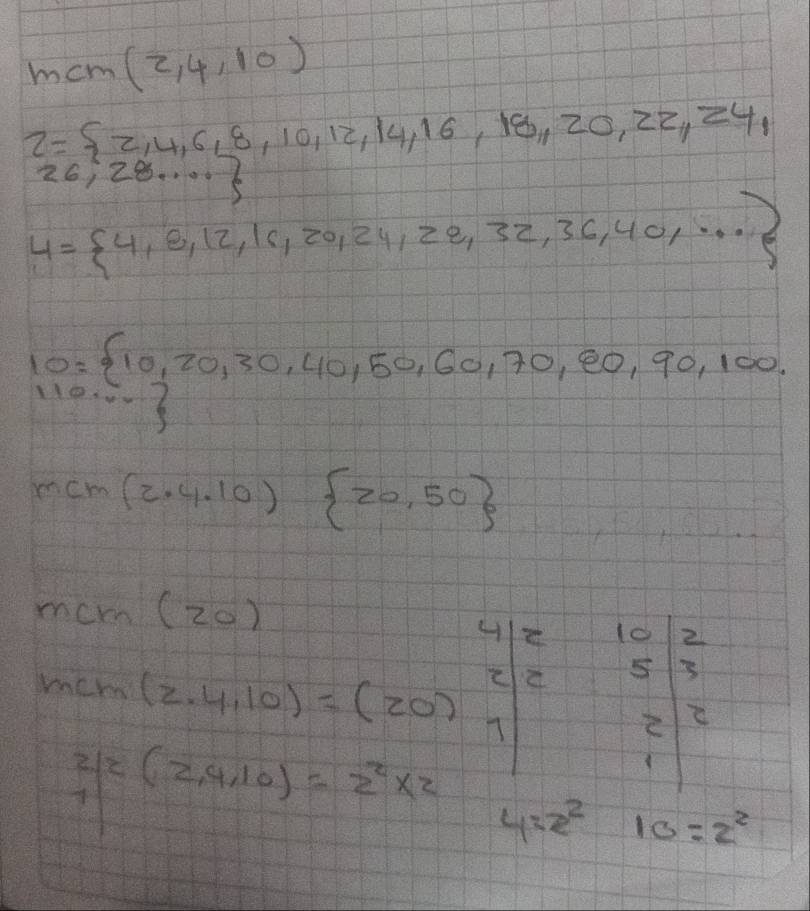 mcm(2,4,10)
2={2,4,6,8,10,12,14,16,18,,20,22,,24,
26,28....}
4={4,8,12,16,20,24,28,32,36,40,...}
10={10,20,30,40,50,60,70,80,90,100.
110...}
mcm(2.4.10) {20,50}
mcm (20)
mcm(2.4,10)=(20)
2|2 (2,4,10)=2²x2
1|
4|2
2|2
1|
10|2
5|3
2|2
1|
4=2² 10=2²